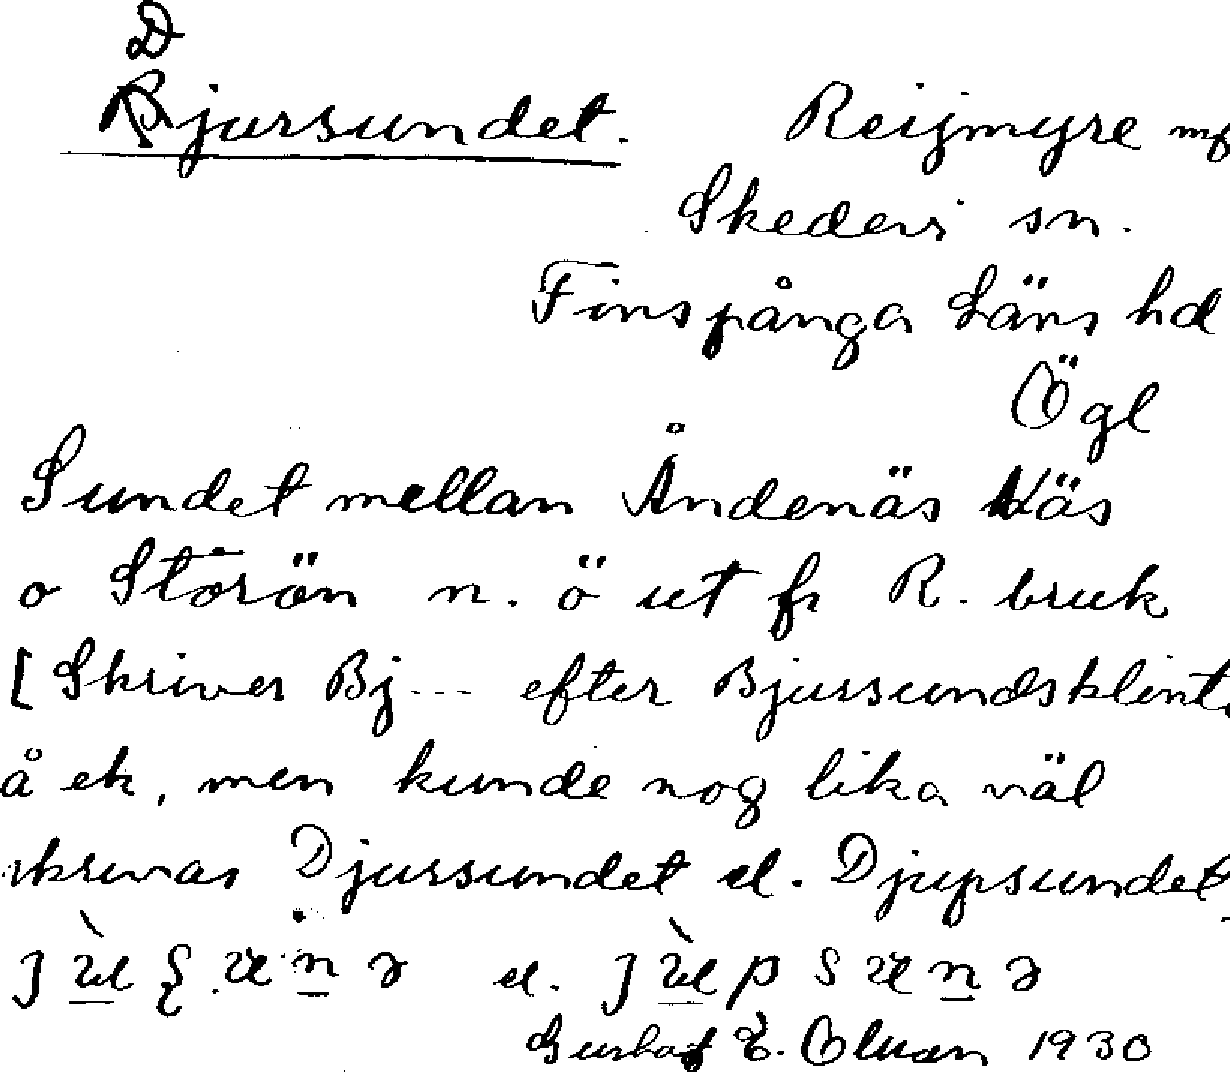 D
Bjursundet. Reijmyre
Skedevi sn.
Finspånga Läns hd
Ögl
Sundet mellan Ändenäs Näs
o Storön n. ö ut fr R. bruk
[Skriver Bj--- efter Bjursundsklint
å ek, men kunde nog lika väl
skrivas Djursundet el. Djupsundet
el.
Gustaf E. 1930